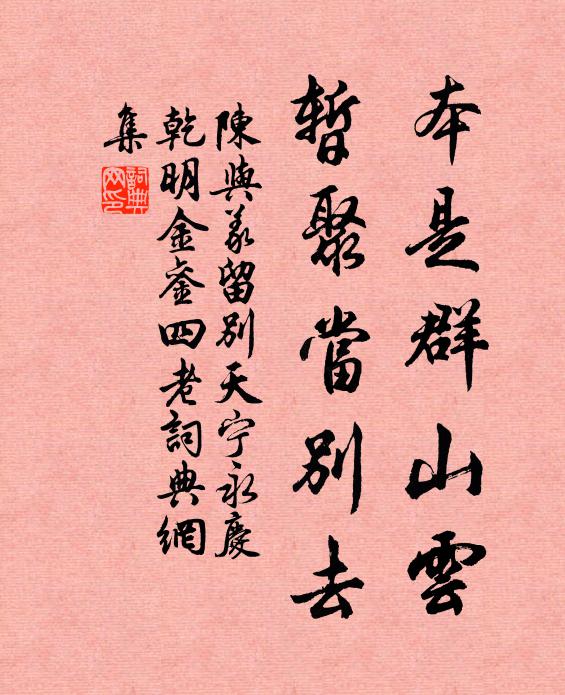 本是群山雲
暫聚當別去
陳與義留別天宁永慶
乾明金銮四老詞典網
集
詞典
网印